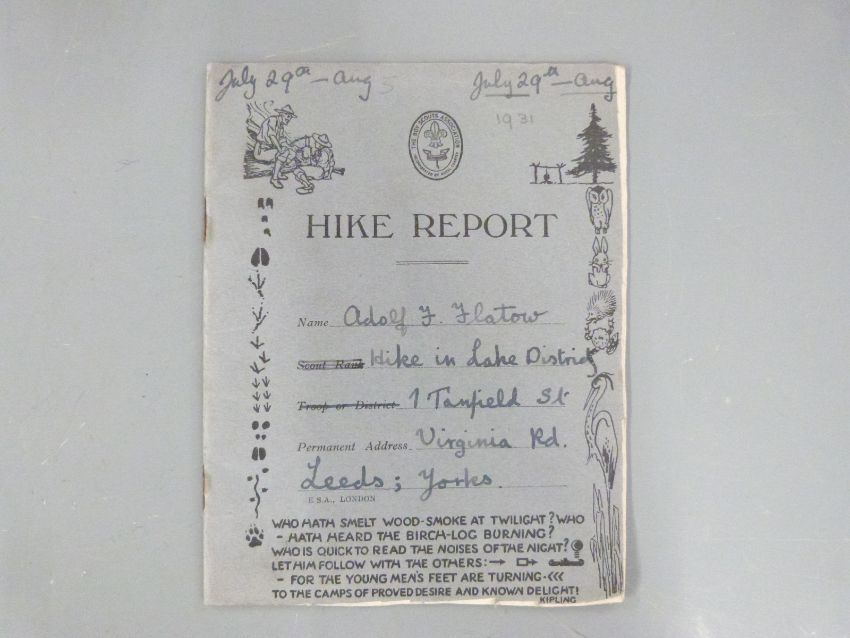 July 29th – Aug 5
July 29th – Aug
1931
THE BOY SCOUTS ASSOCIATION
HIKE REPORT
Name Adolf F. Flatow
Scout Rank Hike in Lake District
Troop or District 1 Tanfield St
Permanent Address Virginia Rd.
Leeds; Yorks.
E.S.A., LONDON
WHO HATH SMELT WOOD-SMOKE AT TWILIGHT? WHO
- HATH HEARD THE BIRCH-LOG BURNING?
WHO IS QUICK TO READ THE NOISES OF THE NIGHT?
LET HIM FOLLOW WITH THE OTHERS:
- FOR THE YOUNG MEN'S FEET ARE TURNING
TO THE CAMPS OF PROVED DESIRE AND KNOWN DELIGHT!
KIPLING